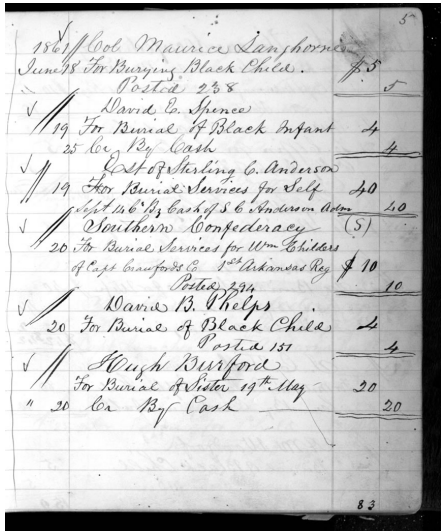 5
1861 Col Maurice Langhorne
June 18 For Burying Black Child. $5
" Posted 238 5
David E. Spence
19 For Burial of Black Infant 4
25 Cr By Cash 4
Est of Sterling C. Anderson
19 For Burial Services for Self 40
Sept 14 Cr By Cash of S C Anderson Adm 40
Southern Confederacy (S)
20 For Burial Services for Wm Childers
of Capt Crawfords Co 1st Arkansas Reg $10
Posted 294 10
David B. Phelps
20 For Burial of Black Child 4
Posted 151 4
Hugh Burford
For Burial of Sister 19th May 20
" 20 Cr By Cash 20
83